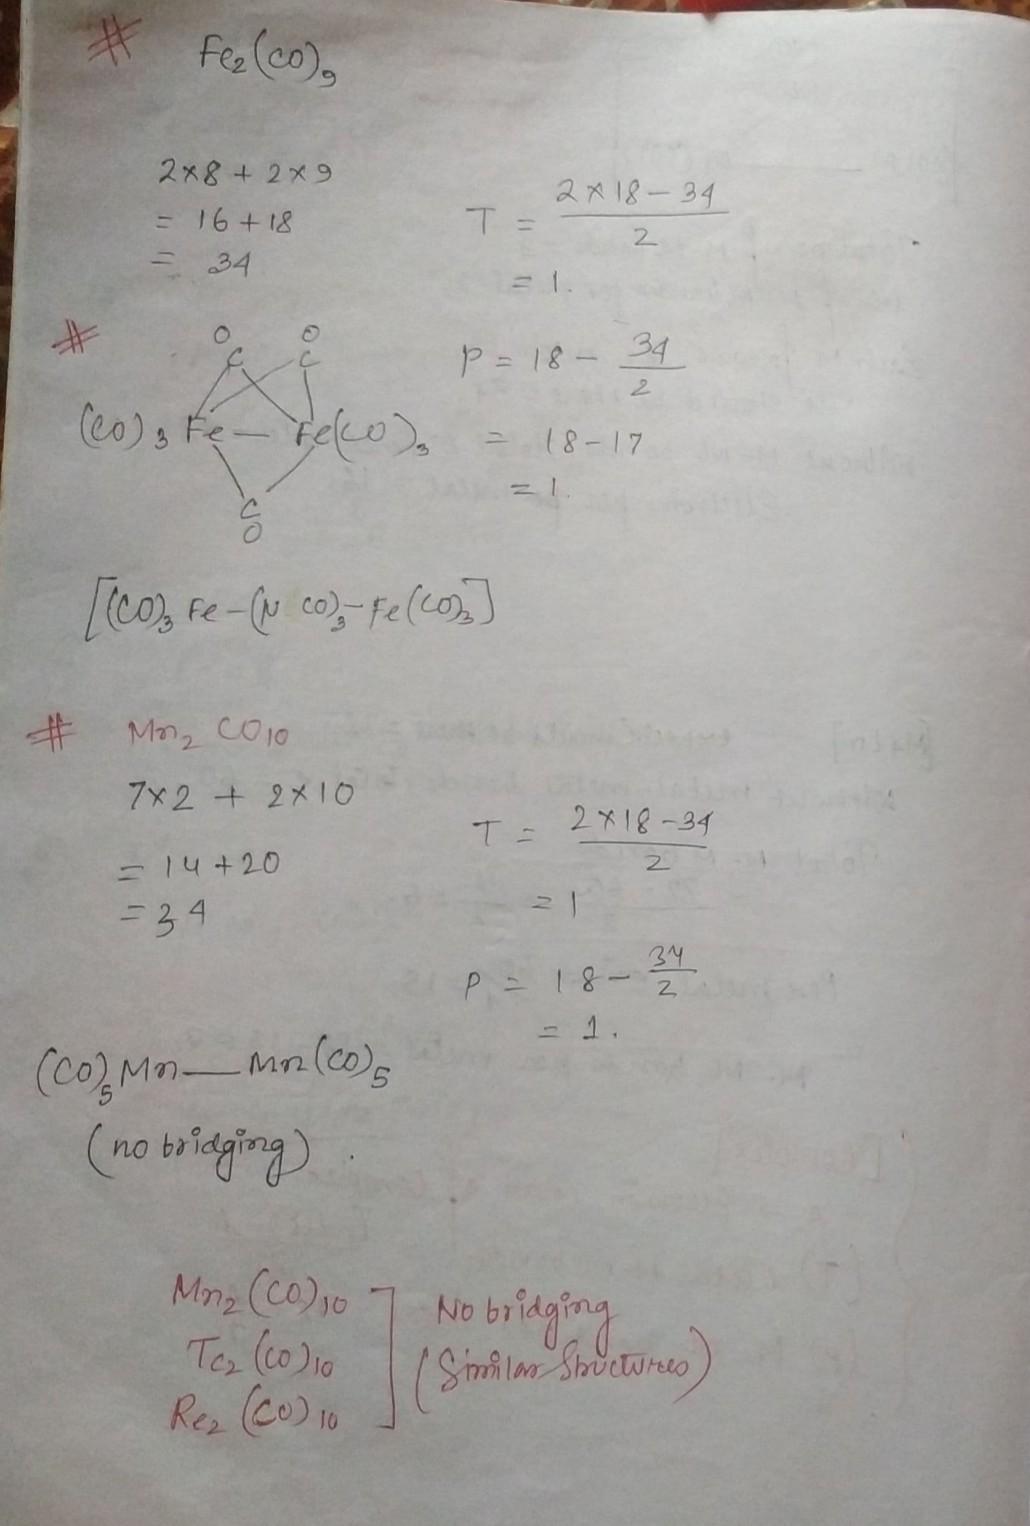 # Fe₂(CO)₉
2×8 + 2×9
= 16+18
= 34
T = (2×18-34)/2
= 1.
# O O
C C
(CO)₃ Fe — Fe(CO)₃
C
O
P = 18 - 34/2
= 18-17
= 1.
[(CO)₃ Fe-(N CO)₃-Fe(CO)₃]
# Mn₂ CO₁₀
7×2 + 2×10
= 14+20
= 34
T = (2×18-34)/2
= 1
P = 18 - 34/2
= 1.
(CO)₅ Mn — Mn(CO)₅
(no bridging).
Mn₂ (CO)₁₀
Tc₂ (CO)₁₀
Re₂ (CO)₁₀
No bridging
(Similar Structures)